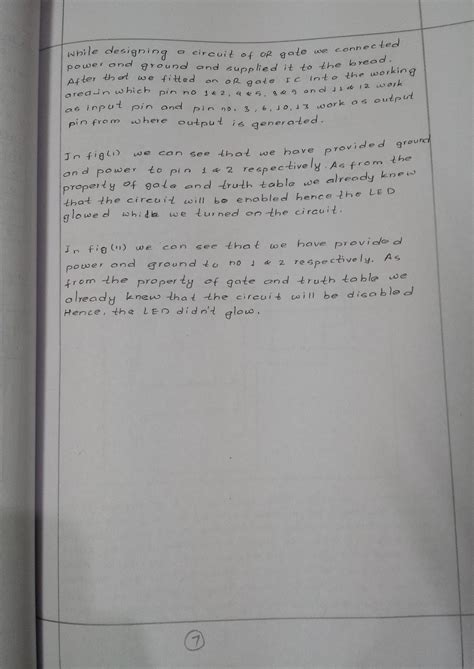 While designing a circuit of OR gate we connected
power and ground and supplied it to the bread.
After that we fitted an OR gate IC into the working
area in which pin no 1&2, 4&5, 8&9 and 11&12 work
as input pin and pin no. 3, 6, 10, 13 work as output
pin from where output is generated.
In fig(i) we can see that we have provided ground
and power to pin 1 & 2 respectively. As from the
property of gate and truth table we already knew
that the circuit will be enabled hence the LED
glowed while we turned on the circuit.
In fig(ii) we can see that we have provided
power and ground to no 1 & 2 respectively. As
from the property of gate and truth table we
already knew that the circuit will be disabled
Hence, the LED didn't glow.
7